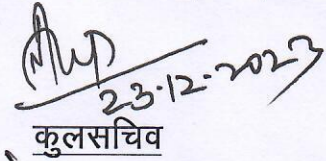 23.12.2023
कुलसचिव